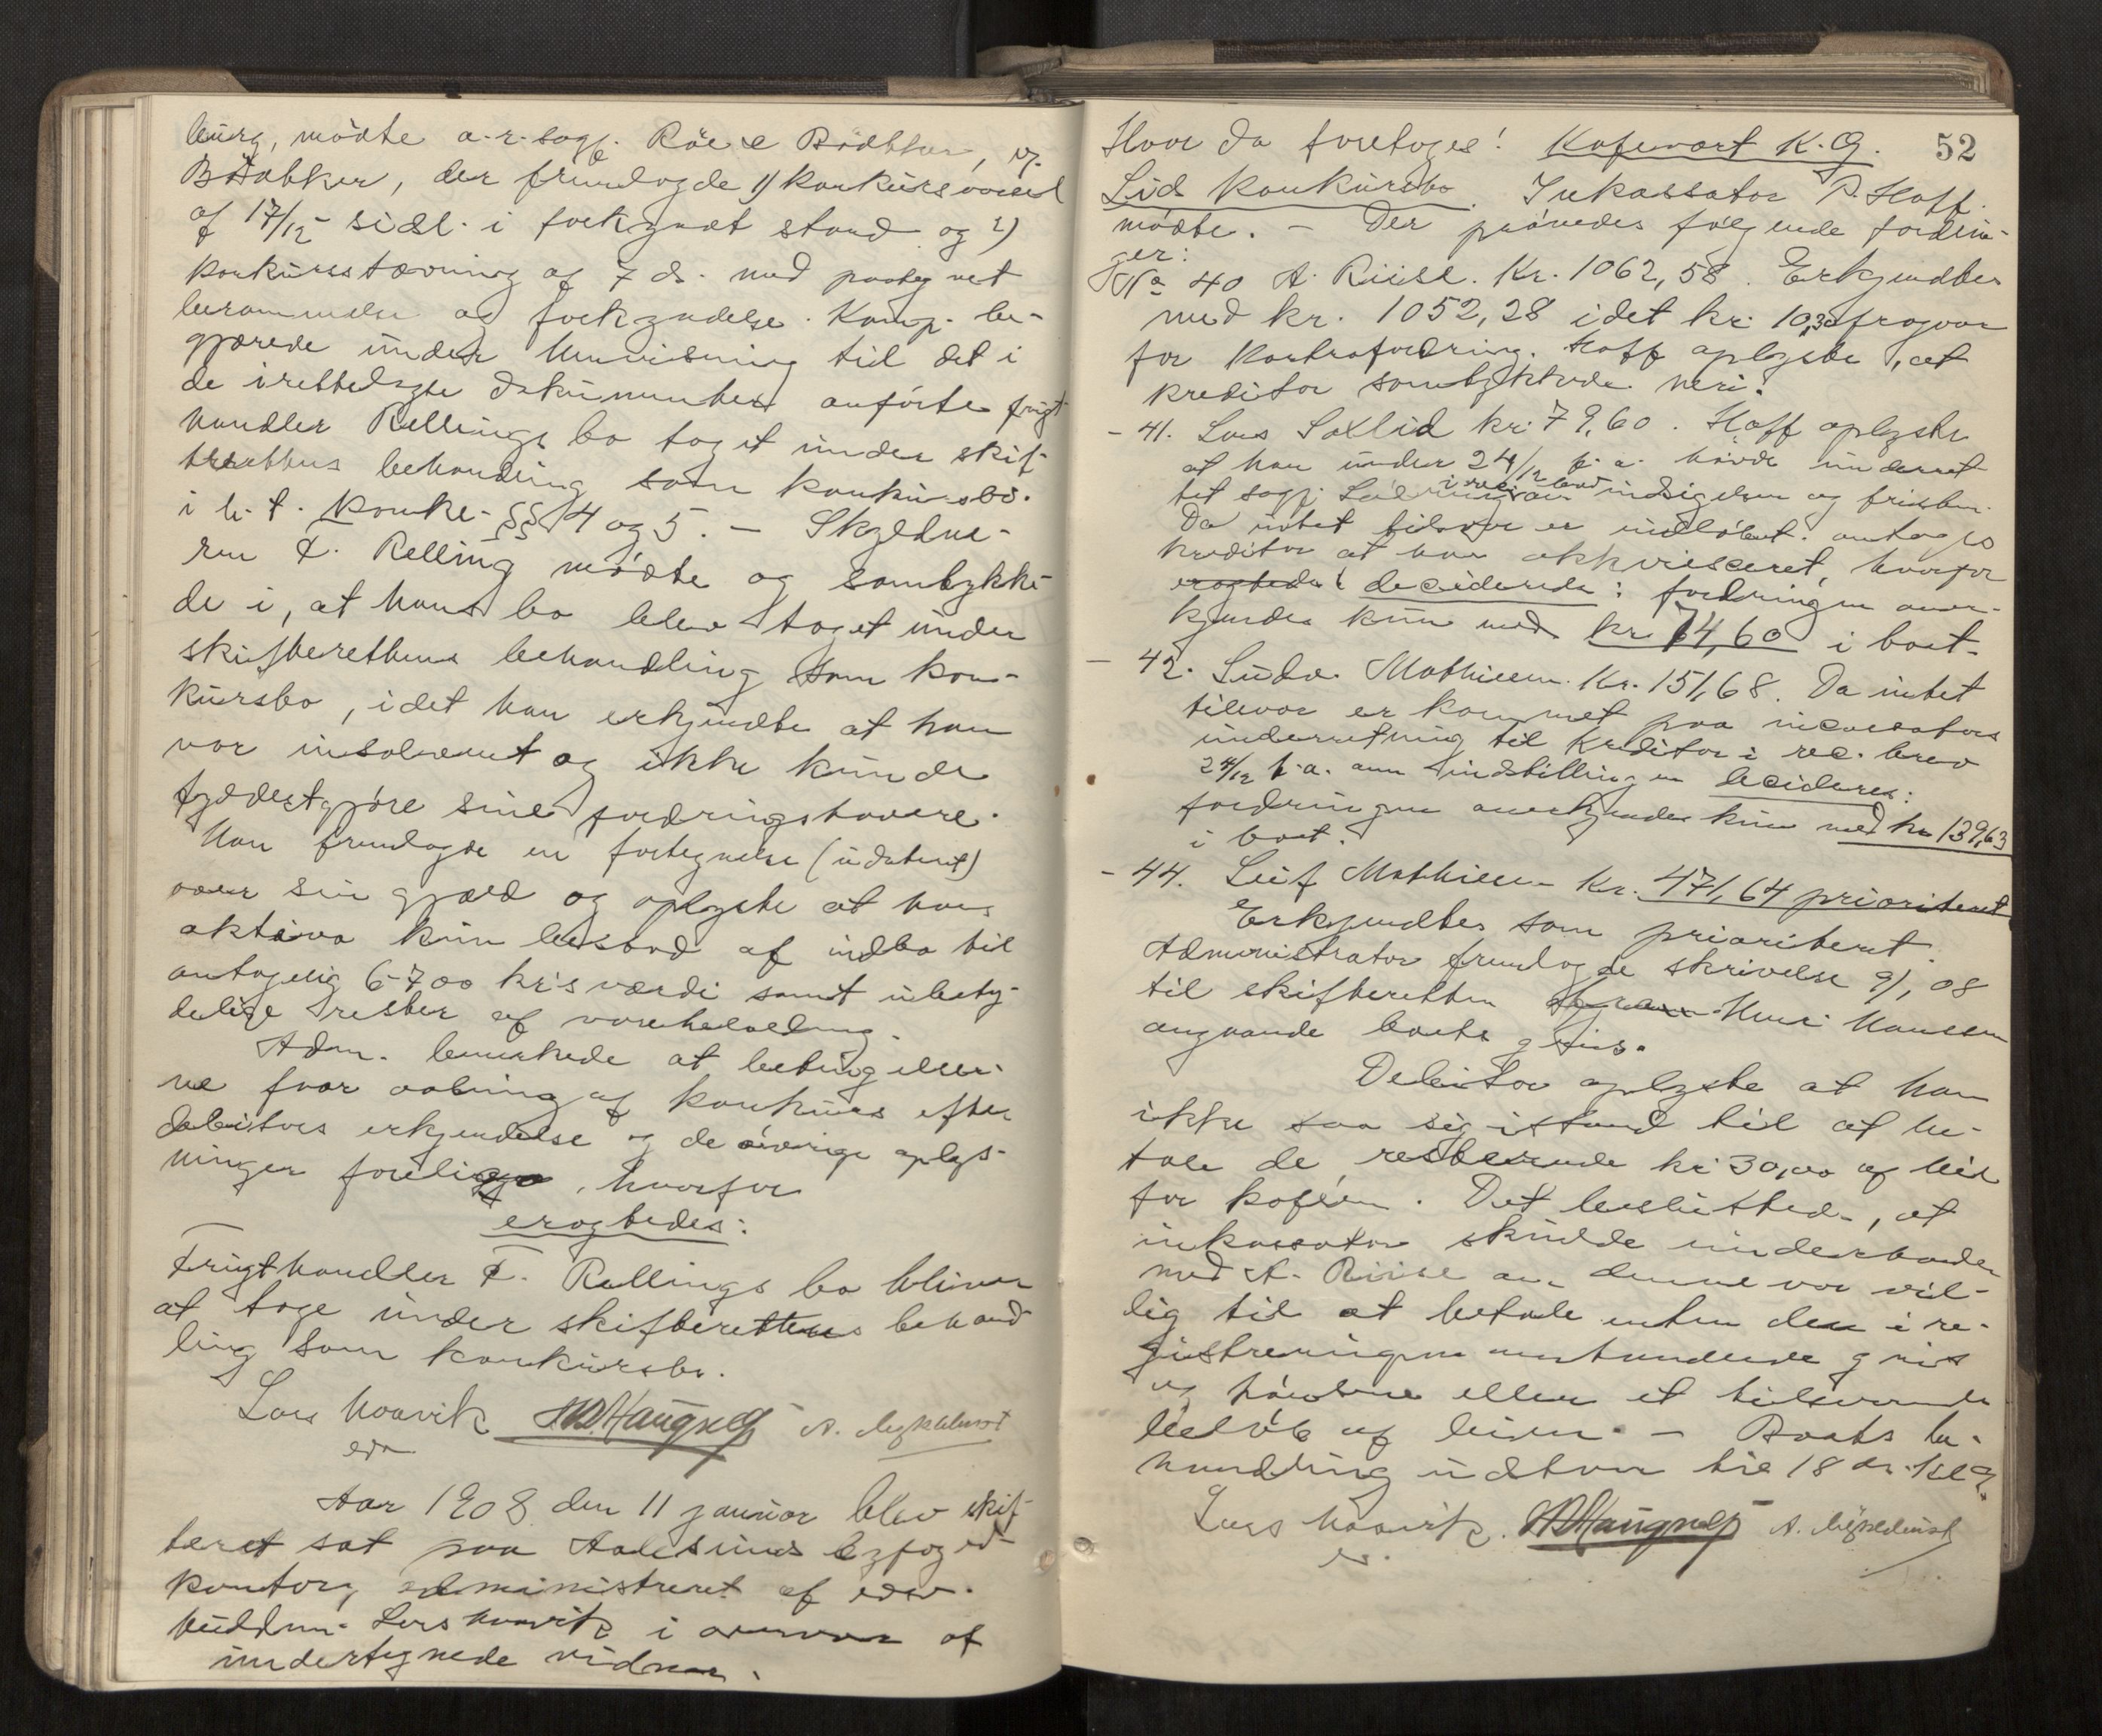 burg, mødte o.r.sagf. Röe
Bødtker, der fremlagde 1) konkursvarsel
af 17/12 sidl. i forkyndt stand og 2)
konkursstævning af 7 ds. med paategnet
berammelse og forkyndelse. Komp. be-
gjærede under henvisning til det i
de irettelagte dokumenter anførte frugt-
handler Rellings bo taget under skif-
terettens behandling som konkursbo
i h. t. konk.l. §§ 4 og 5. – Skyldne-
ren F. Relling mødte og samtykke-
de i, at hans bo blev taget under
skifterettens behandling som kon-
kursbo, idet han erkjendte at han
var insolvent og ikke kunde
fyldestgjøre sine fordringshavere.
Han fremlagde en fortegnelse (udatert)
over sin gjæld og oplyste at hans
aktiva kun bestod af indbo til
antagelig 6-700 kr.s værdi samt ubety-
delige rester af varebeholdning.
Adm. bemerkede at betingelser-
ne for aabning af konkurs efter
debitors erkjendelse og de øvrige oplys-
ninger foreligge, hvorfor
eragtedes:
Frugthandler F. Rellings bo bliver
at tage under skifterettens behand-
ling som konkursbo.
Lars Haavik
edv
Aar 1908 den 11 januar blev skif-
teret sat paa Aalesunds byfoged-
kontor, administreret af edsv.
fuldm. Lars Haavik i overvær af
undertegnede vidner.
52
Hvor da foretoges: K. G.
Lid konkursbo. Inkassator P. Hoff
mødte. – Der prøvedes følgende fordrin-
ger:
No 40 A. Riise. Kr. 1062,58. Erkjendtes
med kr. 1052,28 idet kr. 10,30 fragaar
for kontrafordring. Hoff oplyste, at
kreditor samtykkede heri.
- 41. Lars kr. 79,60. Hoff oplyste
at han under 24/12 f. a. havde underret-
tet sagf. i rec. brev om indsigelsen og fristen.
Da intet tilsvar er indløbet antages
kreditor at have akkviesceret, hvorfor
eragtedes decideredes: fordringen aner-
kjendes kun med kr 74,60 i boet.
- 42. Ludv. Mathiesen Kr. 151,68. Da intet
tilsvar er kommet paa incassators
underretning til kreditor i rec. brev
24/12 f. a. om indstillingen decideres:
fordringen anerkjendes kun med kr 139,63
i boet.
- 44. Leif Mathiesen Kr. 471,64 prioriteret
Erkjendtes som prioriteret.
Administrator fremlagde skrivelse 9/1 08
til skifteretten Hansen
angaaende boets gris.
Debitor oplyste at han
ikke saa sig istand til at be-
tale de resterende kr 30,00 af leie
for kafeen. Det besluttedes, at
inkassator skulde underhandle
med A. Riise om denne var vil-
lig til at betale enten den i re-
gistreringen omhandlede gris
og hønsene eller et tilsvarende
beløb af leien. – Boets be-
handling udstaar til 18 ds. kl 9.
Lars Haavik.